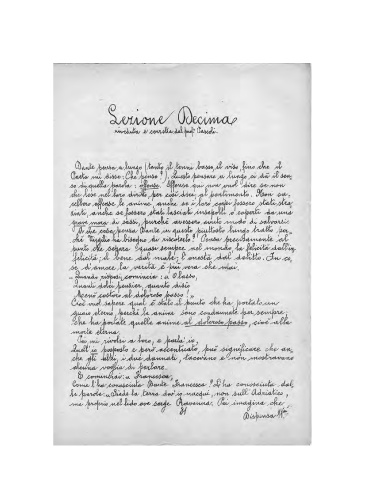 Lezione Decima
riveduta e corretta dal prof. Cassoli.
Dante pensa a lungo (tanto il tenni basso il viso fino che il
Poeta mi disse: Che pense?). Questo pensare a lungo ci dà il sen
so di quella parola: offense. Offense qui non vuol dire se non
che lese nel loro diritto, per cui diresi al pentimento. Non sa
rebbero offense le anime anche se i loro corpi fossero stati stra
ziati, anche se fossero stati lasciati insepolti e coperti da una
gran mora di sassi, purché avessero avuto modo di salvarsi.
A che cosa pensa Dante in questo piuttosto lungo tratto per
che Virgilio ha bisogno di riscuoterlo? Pensa precisamente al
punto che separa, quasi sempre, nel mondo la felicità dalla
felicità, il bene dal male, l'onestà dal delitto.
se di amore, la verità è più vera che mai.
Quando risposi, cominciai: o lasso,
Quanti dolci pensier, quanto disio
Menò costoro al doloroso passo!
Cioè nel sapere qual è stato il punto che ha portato un
quasi eterno perché le anime sono condannate per sempre.
Che ha portato quelle anime al doloroso passo, cioè alla
morte eterna.
Poi mi rivolsi a loro, e parla' io,
Quell'io posposto e però accentuato, può significare che an
che gli altri, i due dannati, tacevano e non mostravano
alcuna voglia di parlare.
E cominciai: Francesca,
Come l'ha conosciuta Dante Francesca? L'ha conosciuta dal
le parole: Siede la terra dov'io nacqui, non sull'Adriatico,
ma proprio nel lido ove sorge Ravenna. Poi imagina che
31
Dispensa 11ª